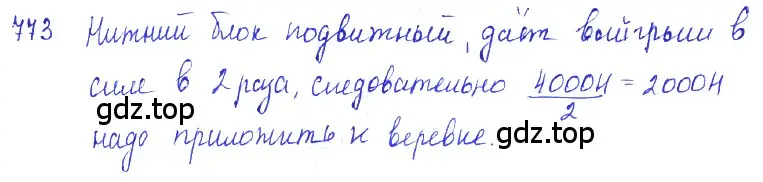 773 Нижний блок подвижный, даёт выигрыш в
силе в 2 раза, следовательно 4000Н/2 = 2000Н
gdz.top gdz.top
надо приложить к веревке.